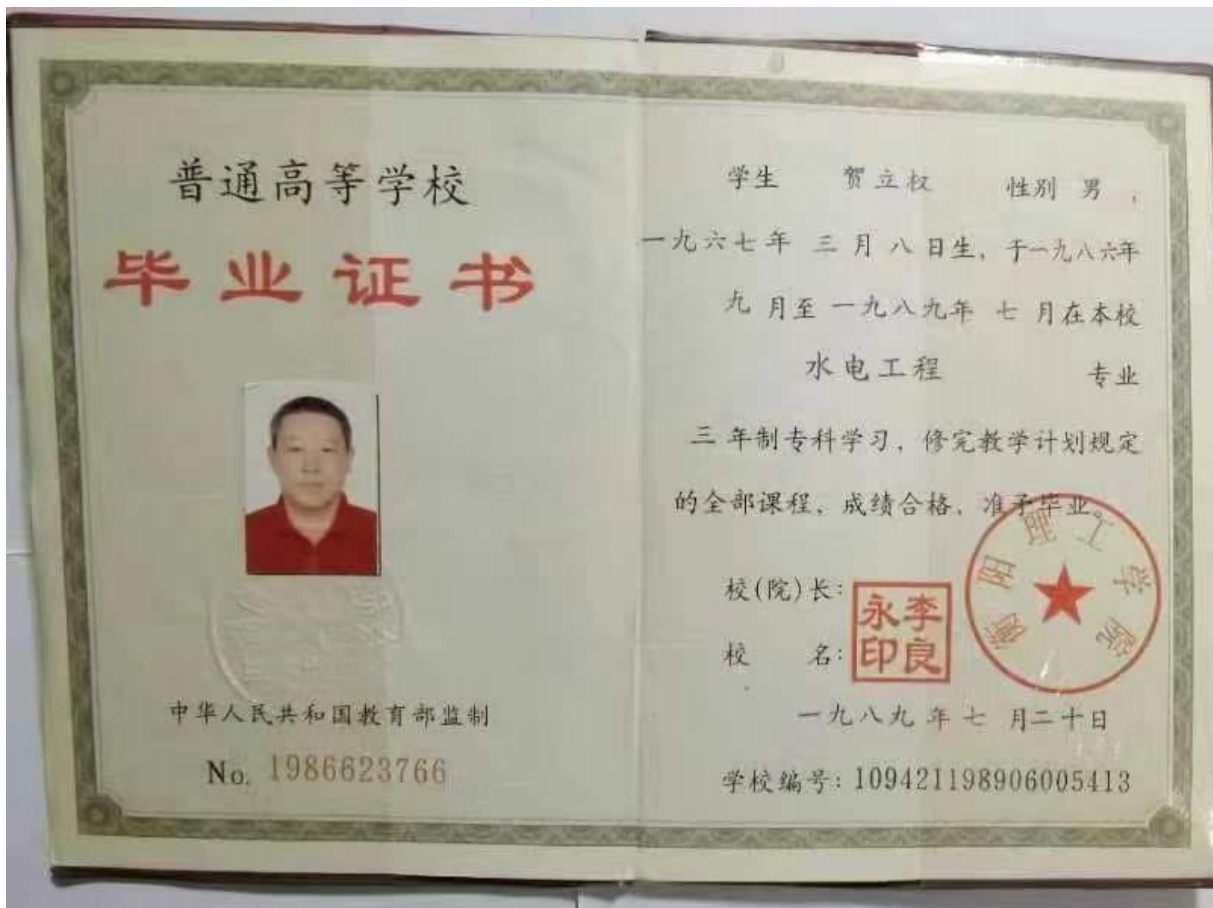 普通高等学校
毕业证书
中华人民共和国教育部监制
No. 1986623766
学生 贺立权 性别 男，
一九六七年 三月八日生，于一九八六年
九月至一九八九年 七月在本校
水电工程 专业
三年制专科学习，修完教学计划规定
的全部课程，成绩合格，准予毕业。
校(院)长：
李良永印
校 名：
衡阳理工学院
一九八九年七月二十日
学校编号：109421198906005413